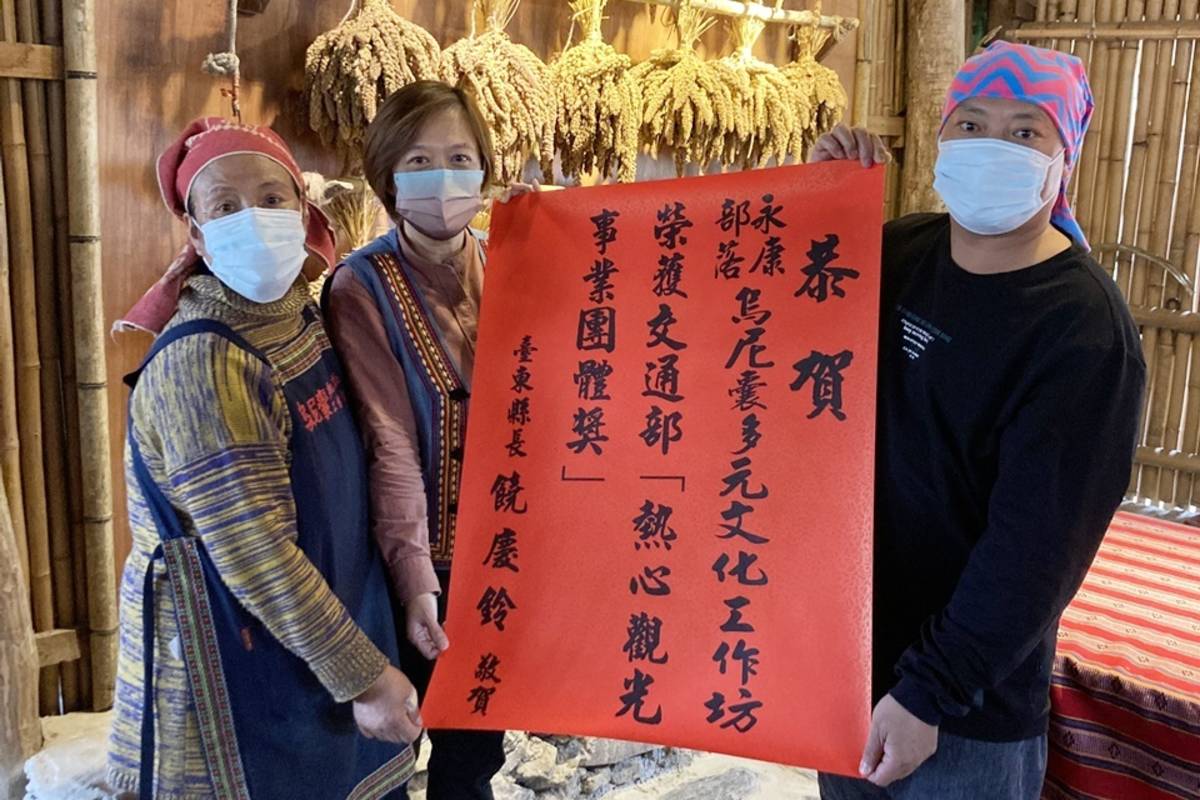 恭賀
永康部落烏尼囊多元文化工作坊
榮獲交通部「熱心觀光
事業團體獎」
臺東縣長饒慶鈴敬賀